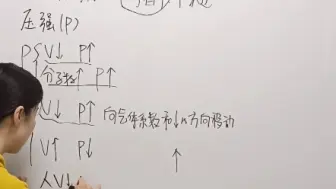 压强(P)
P V↓ P↑
分子数↑ P↑
V↓ P↑ 向气体系数和↓的方向移动
V↑ P↓
↑
V↓